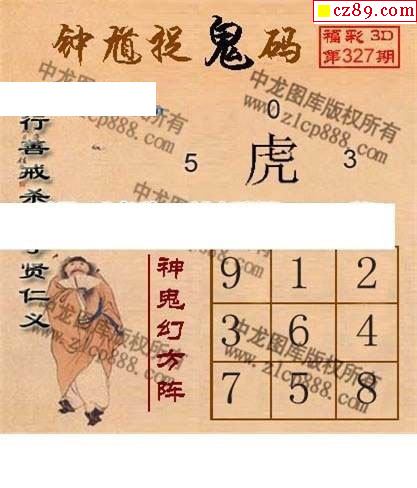 cz89.com
钟馗捉鬼码
福彩3D
第327期
行善戒杀
贤仁义
0
5 虎 3
神鬼幻方阵
9 1 2
3 6 4
7 5 8
中龙图库版权所有
www.zlcp888.com
中龙图库版权所有
www.zlcp888.com
中龙图库版权所有
www.zlcp888.com
中龙图库版权所有
www.zlcp888.com